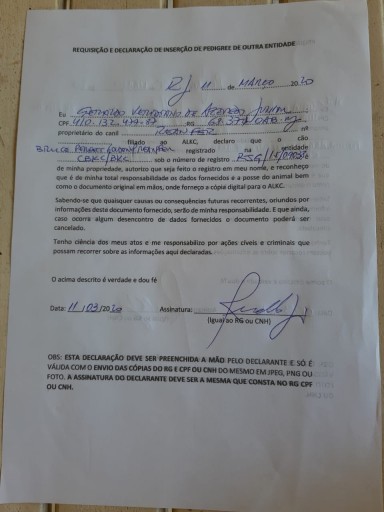 REQUISIÇÃO E DECLARAÇÃO DE INSERÇÃO DE PEDIGREE DE OUTRA ENTIDADE
RJ, 11 de MARÇO 2020
Eu
CPF RG
proprietário do canil nº
filiado ao ALKC, declaro que o cão
registrado na entidade
CBKC/BKC sob o número de registro
de minha propriedade, autorizo que seja feito o registro em meu nome, e reconheço
que é de minha total responsabilidade os dados fornecidos e a posse do animal bem
como o documento original em mãos, onde forneço a cópia digital para o ALKC.
Sabendo-se que quaisquer causas ou consequências futuras recorrentes, oriundos por
informações deste documento fornecido, serão de minha responsabilidade. E que ainda,
caso ocorra algum desencontro de dados fornecidos o documento poderá ser
cancelado.
Tenho ciência dos meus atos e me responsabilizo por ações cíveis e criminais que
possam recorrer sobre as informações aqui declaradas.
O acima descrito é verdade e dou fé
Data: 11/03/2020 Assinatura:
(Igual ao RG ou CNH)
OBS: ESTA DECLARAÇÃO DEVE SER PREENCHIDA A MÃO PELO DECLARANTE E SÓ É
VÁLIDA COM O ENVIO DAS CÓPIAS DO RG E CPF OU CNH DO MESMO EM JPEG, PNG OU
FOTO. A ASSINATURA DO DECLARANTE DEVE SER A MESMA QUE CONSTA NO RG CPF
OU CNH.